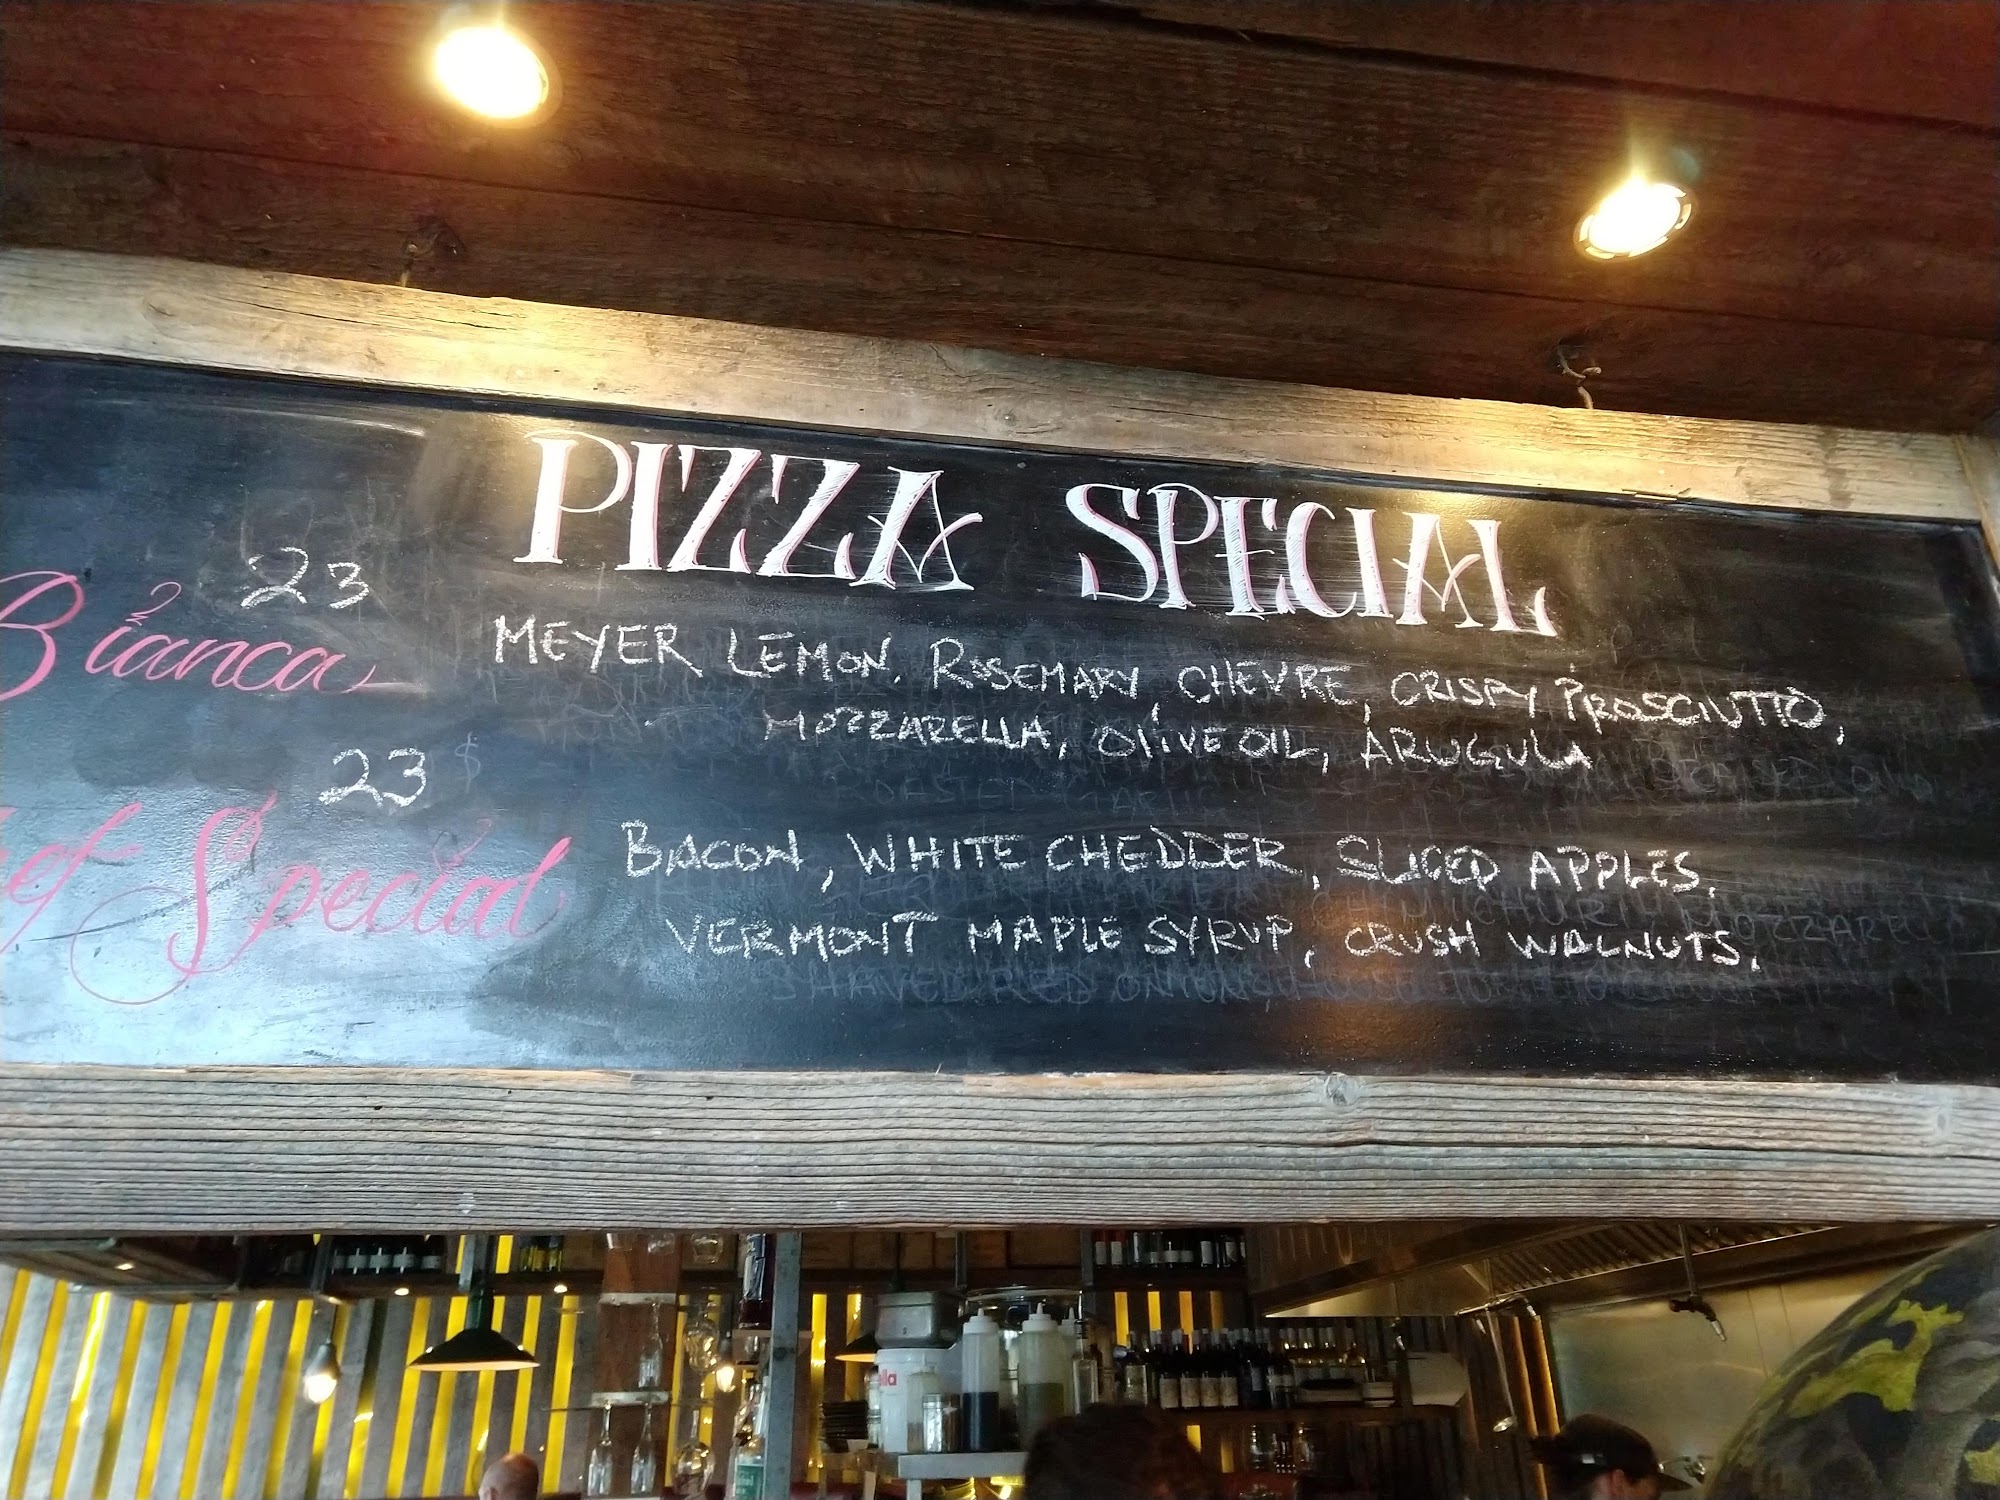 PIZZA SPECIAL
23
Bianca
MEYER LEMON, ROSEMARY, CHEVRE, CRISPY PROSCIUTTO,
MOZZARELLA, OLIVE OIL, ARUGULA
23 $
Special
BACON, WHITE CHEDDER, SLICED APPLES,
VERMONT MAPLE SYRUP, CRUSH WALNUTS.
SHAVED RED ONIONS